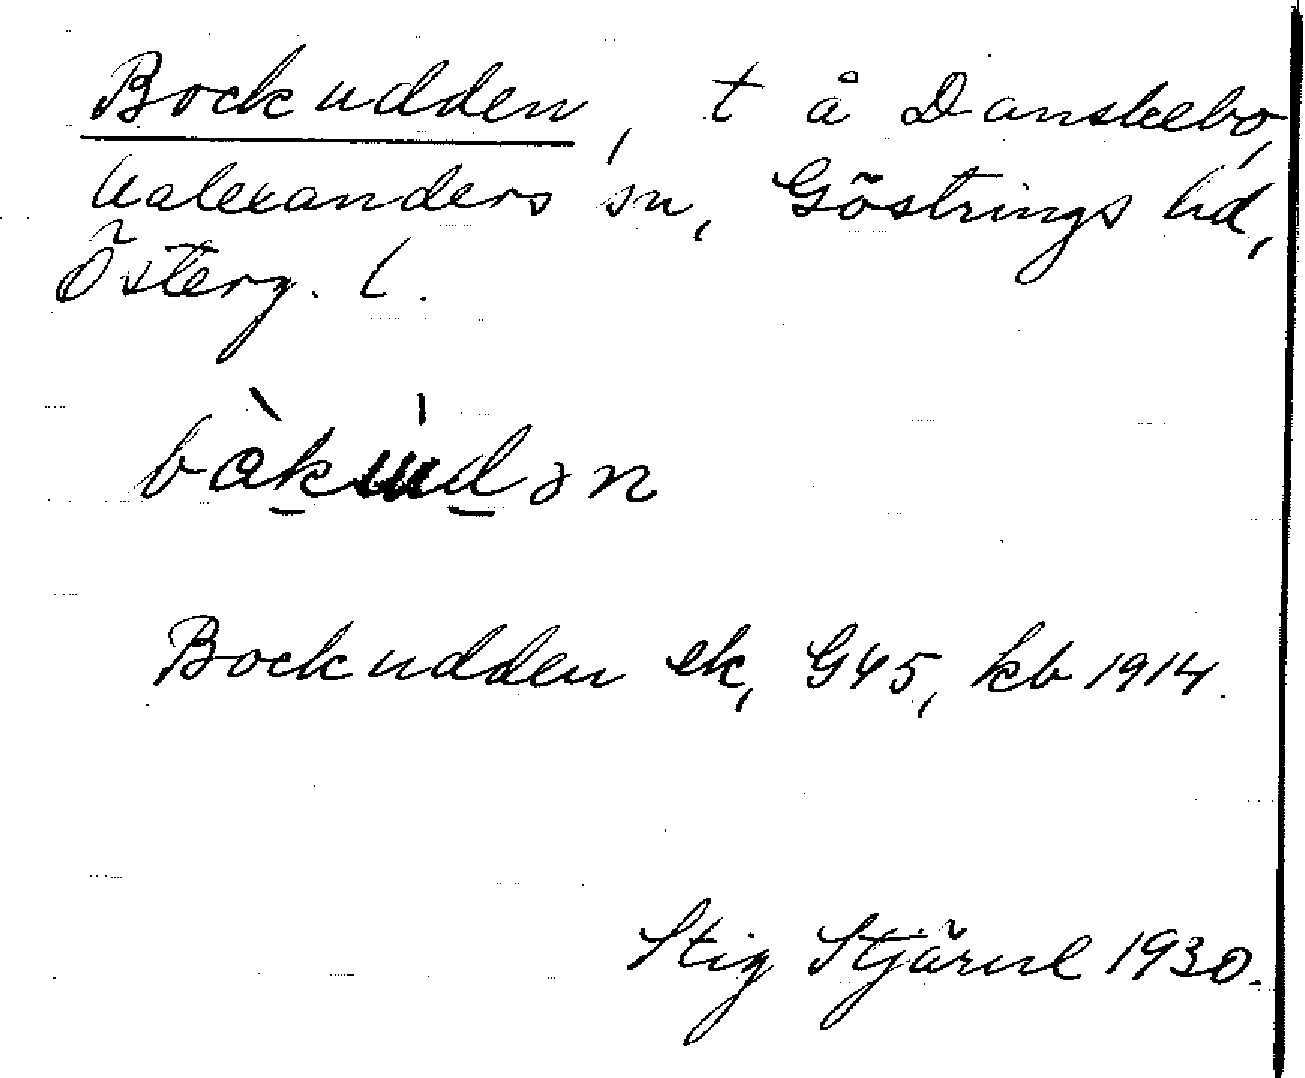 Bockudden, t å Danskebo,
Walexanders sn, Göstrings hd,
Österg. l.
Bockudden ek, G45, kb 1914.
Stig Stjärne 1930.